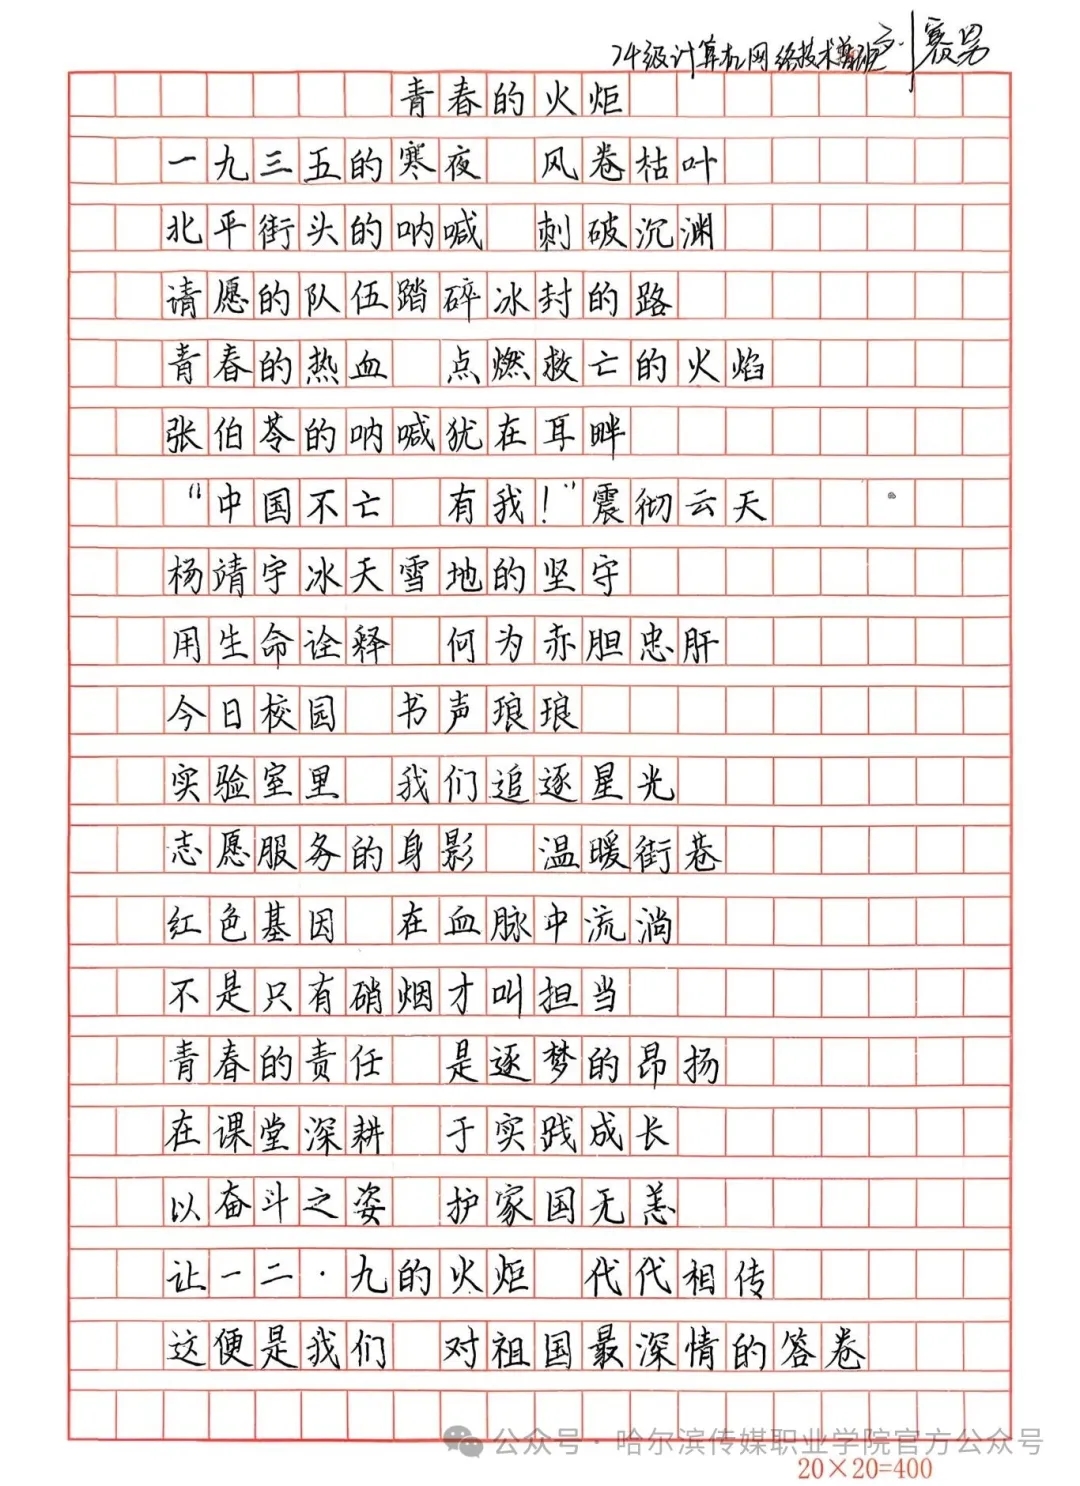 24级计算机网络技术普班 刘赛男
青春的火炬
一九三五的寒夜 风卷枯叶
北平街头的呐喊 刺破沉渊
请愿的队伍踏碎冰封的路
青春的热血 点燃救亡的火焰
张伯苓的呐喊犹在耳畔
“中国不亡 有我!”震彻云天
杨靖宇冰天雪地的坚守
用生命诠释 何为赤胆忠肝
今日校园 书声琅琅
实验室里 我们追逐星光
志愿服务的身影 温暖街巷
红色基因 在血脉中流淌
不是只有硝烟才叫担当
青春的责任 是逐梦的昂扬
在课堂深耕 于实践成长
以奋斗之姿 护家国无恙
让一二·九的火炬 代代相传
这便是我们 对祖国最深情的答卷
公众号·哈尔滨传媒职业学院官方公众号
20×20=400